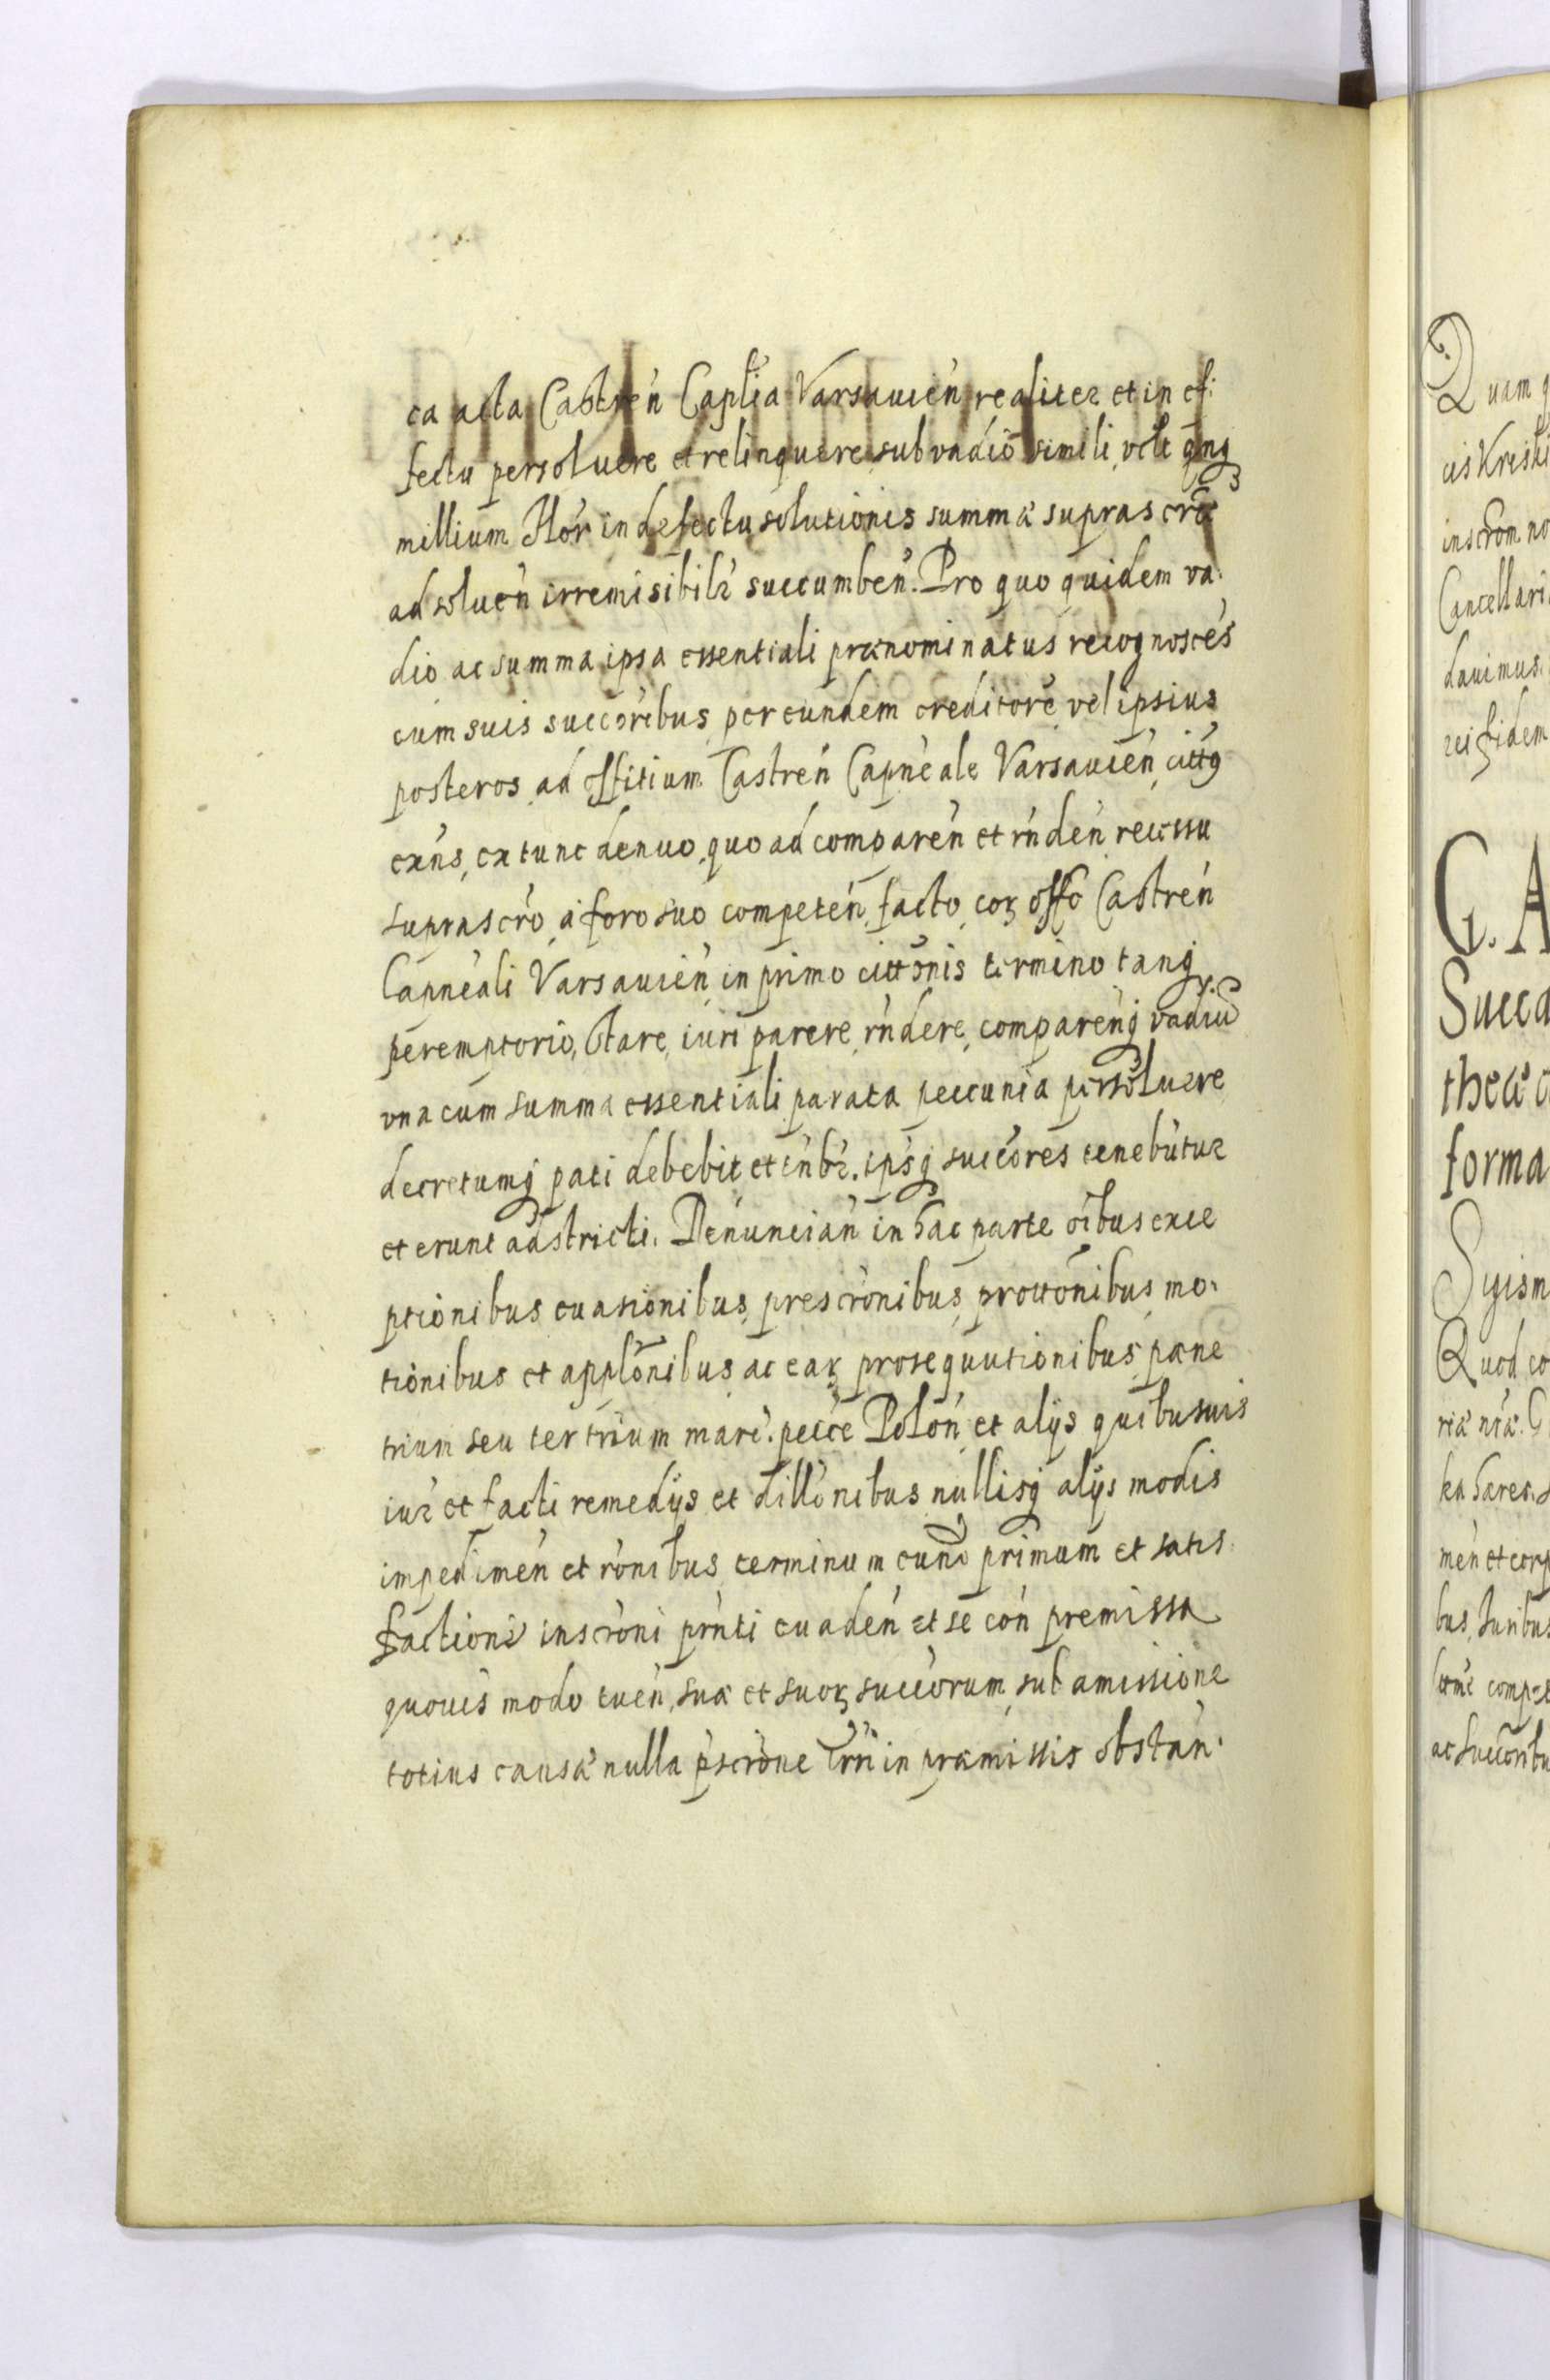 ca acta Castren̄ Capłia Varsauien̄ realiter et in ef:
fectu persoluere et relinquere, sub vadio simili, vt̄lt qn̄qꝫ
millium Flor̄ in defectu solutionis summæ suprascrōe
ad soluen̄ irremisibilr̄ succumben̄. Pro quo quidem va:
dio ac summa ipsa essentiali prænominatus recognoscēs
cum suis succōribus, per eundem creditorē vel ipsius
posteros, ad offitium Castren̄ Capneale Varsauien̄, citt9
exn̄s, ex tunc denuo, quo ad comparen̄ et rn̄den̄ recessu
suprascrō, a foro suo competen̄, facto, corꝫ offo Castren̄
Capneali Varsauien̄, in primo cittōnis termino tanqꝫ
peremptorio, stare, iuri parere, rn̄dere, comparenqꝫ vadiū
vna cum summa essentiali parata peccunia persoluere
decretumqꝫ pati debebit et tn̄br̄. ipsqꝫ succōres tenebūtur
et erunt adstricti. Denuncian̄ in hac parte oībus exce
ptionibus euasionibus, prescrōnibus, prottōnibus, mo:
tionibus et applōnibus ac earꝫ prosequutionibus, pæne
trium seu ter trium marc̄. pecc̄e Polon̄, et alijs quibusuis
iur̄ et facti remedijs et dillōnibus nullisqꝫ alijs modis
impedimen̄ et rōnibus terminum eund̄ primum et satis
factioni inscrōni prn̄ti euaden̄ et se con̄ premissa
quouis modo tuen̄, suæ et suorꝫ succōrum, sub amissione
totius causæ nulla p̄scrōne trr̄i in præmissis obstan̄.
Quam
cis Kriski
inscrōm no
Cancellari
dauimus.
rei fidem
G. A
Succa
theæ c
forma
Quod co
riæ nr̄æ.
ka hæres.
men̄ et corp
bus, Iuribus
ac Succōribu